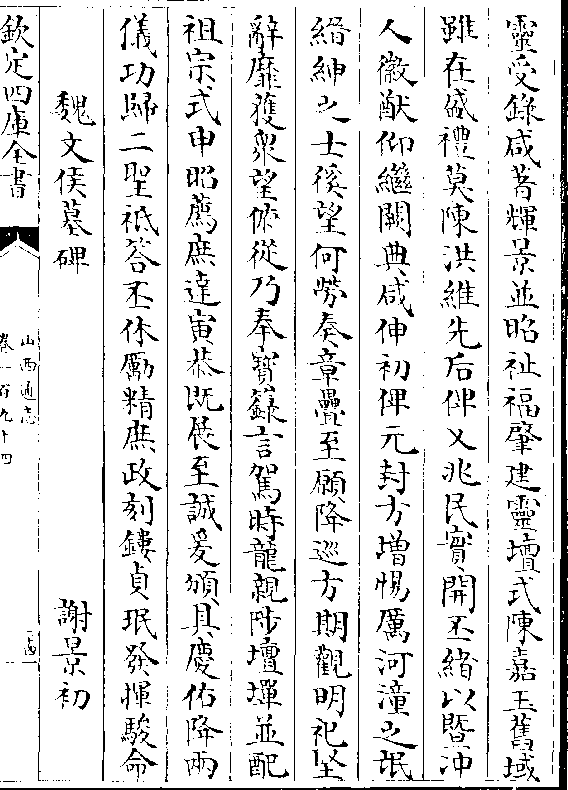 靈受錄咸著輝景並昭祉福肇建靈壇式陳嘉玉舊域
雖在盛禮莫陳洪維先后俾乂兆民實開丕緒以暨沖
人徽猷仰繼闕典咸伸初俾元封方增惕厲河潼之氓
縉紳之士徯望何勞奏章疊至願降巡方期觀明祀堅
辭靡獲衆望俯從乃奉寳籙言駕時龍親陟壇墠並配
祖宗式申昭薦庶達寅恭既展至誠爰頒具慶佑降兩
儀功歸二聖祗答丕休勵精庶政刻鏤貞珉發揮駿命
魏文侯墓碑 謝景初
欽定四庫全書
山西通志
卷一百九十四